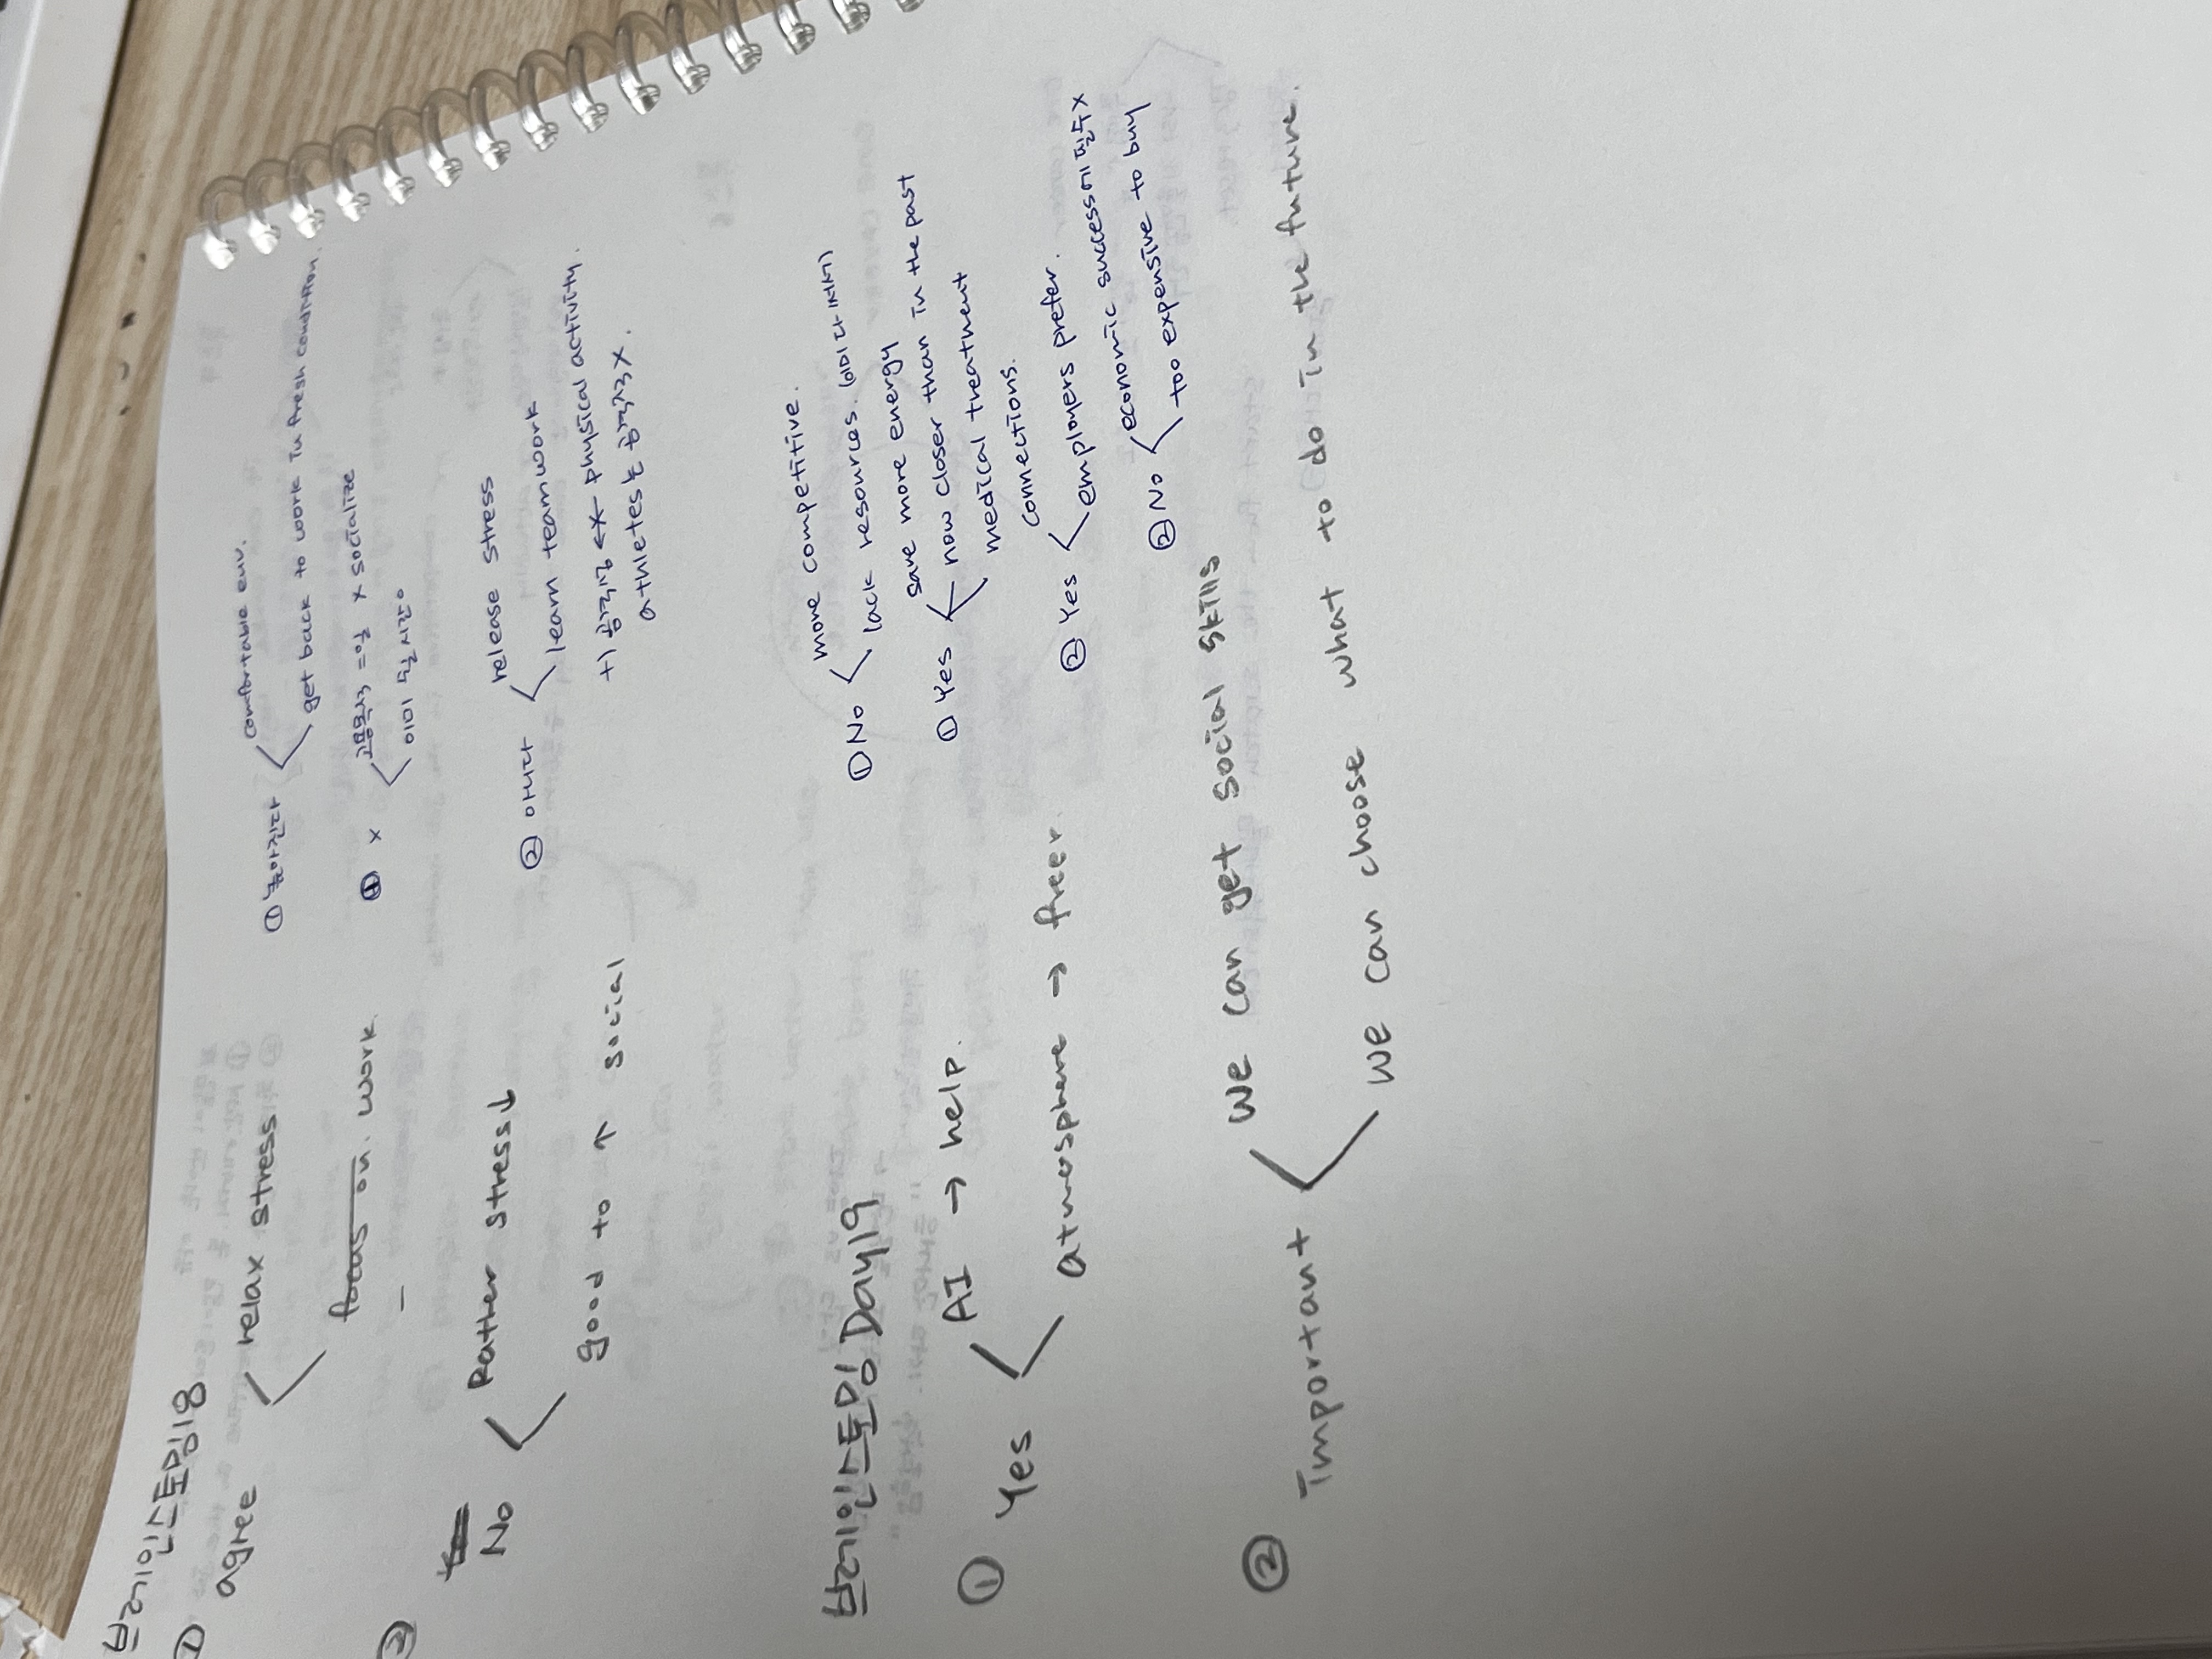 브레인스토밍18
① agree
relax stress
focus on work
–
② Yes
No
Rather stress↓
good to ↑ social
① 높아진다
comfortable env.
get back to work in fresh condition.
① x
x socialize
이미
② 아니다
release stress
learn teamwork
+) 공격성 ↔ physical activity.
athletes는 공격적x.
브레인스토밍 Day19
① Yes
AI → help.
atmosphere → freer.
② important
we can get social skills
we can choose what to do in the future.
① No
more competitive.
lack resources.
① Yes
save more energy
now closer than in the past
medical treatment
② Yes
connections.
employers prefer.
② No
economic success에 필수x
too expensive to buy